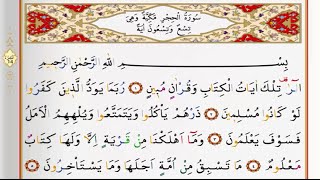 سُورَةُ الْحِجْرِ مَكِّيَّةٌ وَهِيَ
تِسْعٌ وَتِسْعُونَ اٰيَةً
بِسْمِ اللّٰهِ الرَّحْمٰنِ الرَّحٖيمِ
الٓرٰ تِلْكَ اٰيَاتُ الْكِتَابِ وَقُرْاٰنٍ مُبٖينٍ ﴿١﴾ رُبَمَا يَوَدُّ الَّذٖينَ كَفَرُوا
لَوْ كَانُوا مُسْلِمٖينَ ﴿٢﴾ ذَرْهُمْ يَأْكُلُوا وَيَتَمَتَّعُوا وَيُلْهِهِمُ الْاَمَلُ
فَسَوْفَ يَعْلَمُونَ ﴿٣﴾ وَمَٓا اَهْلَكْنَا مِنْ قَرْيَةٍ اِلَّا وَلَهَا كِتَابٌ
مَعْلُومٌ ﴿٤﴾ مَا تَسْبِقُ مِنْ اُمَّةٍ اَجَلَهَا وَمَا يَسْتَأْخِرُونَ ﴿٥﴾